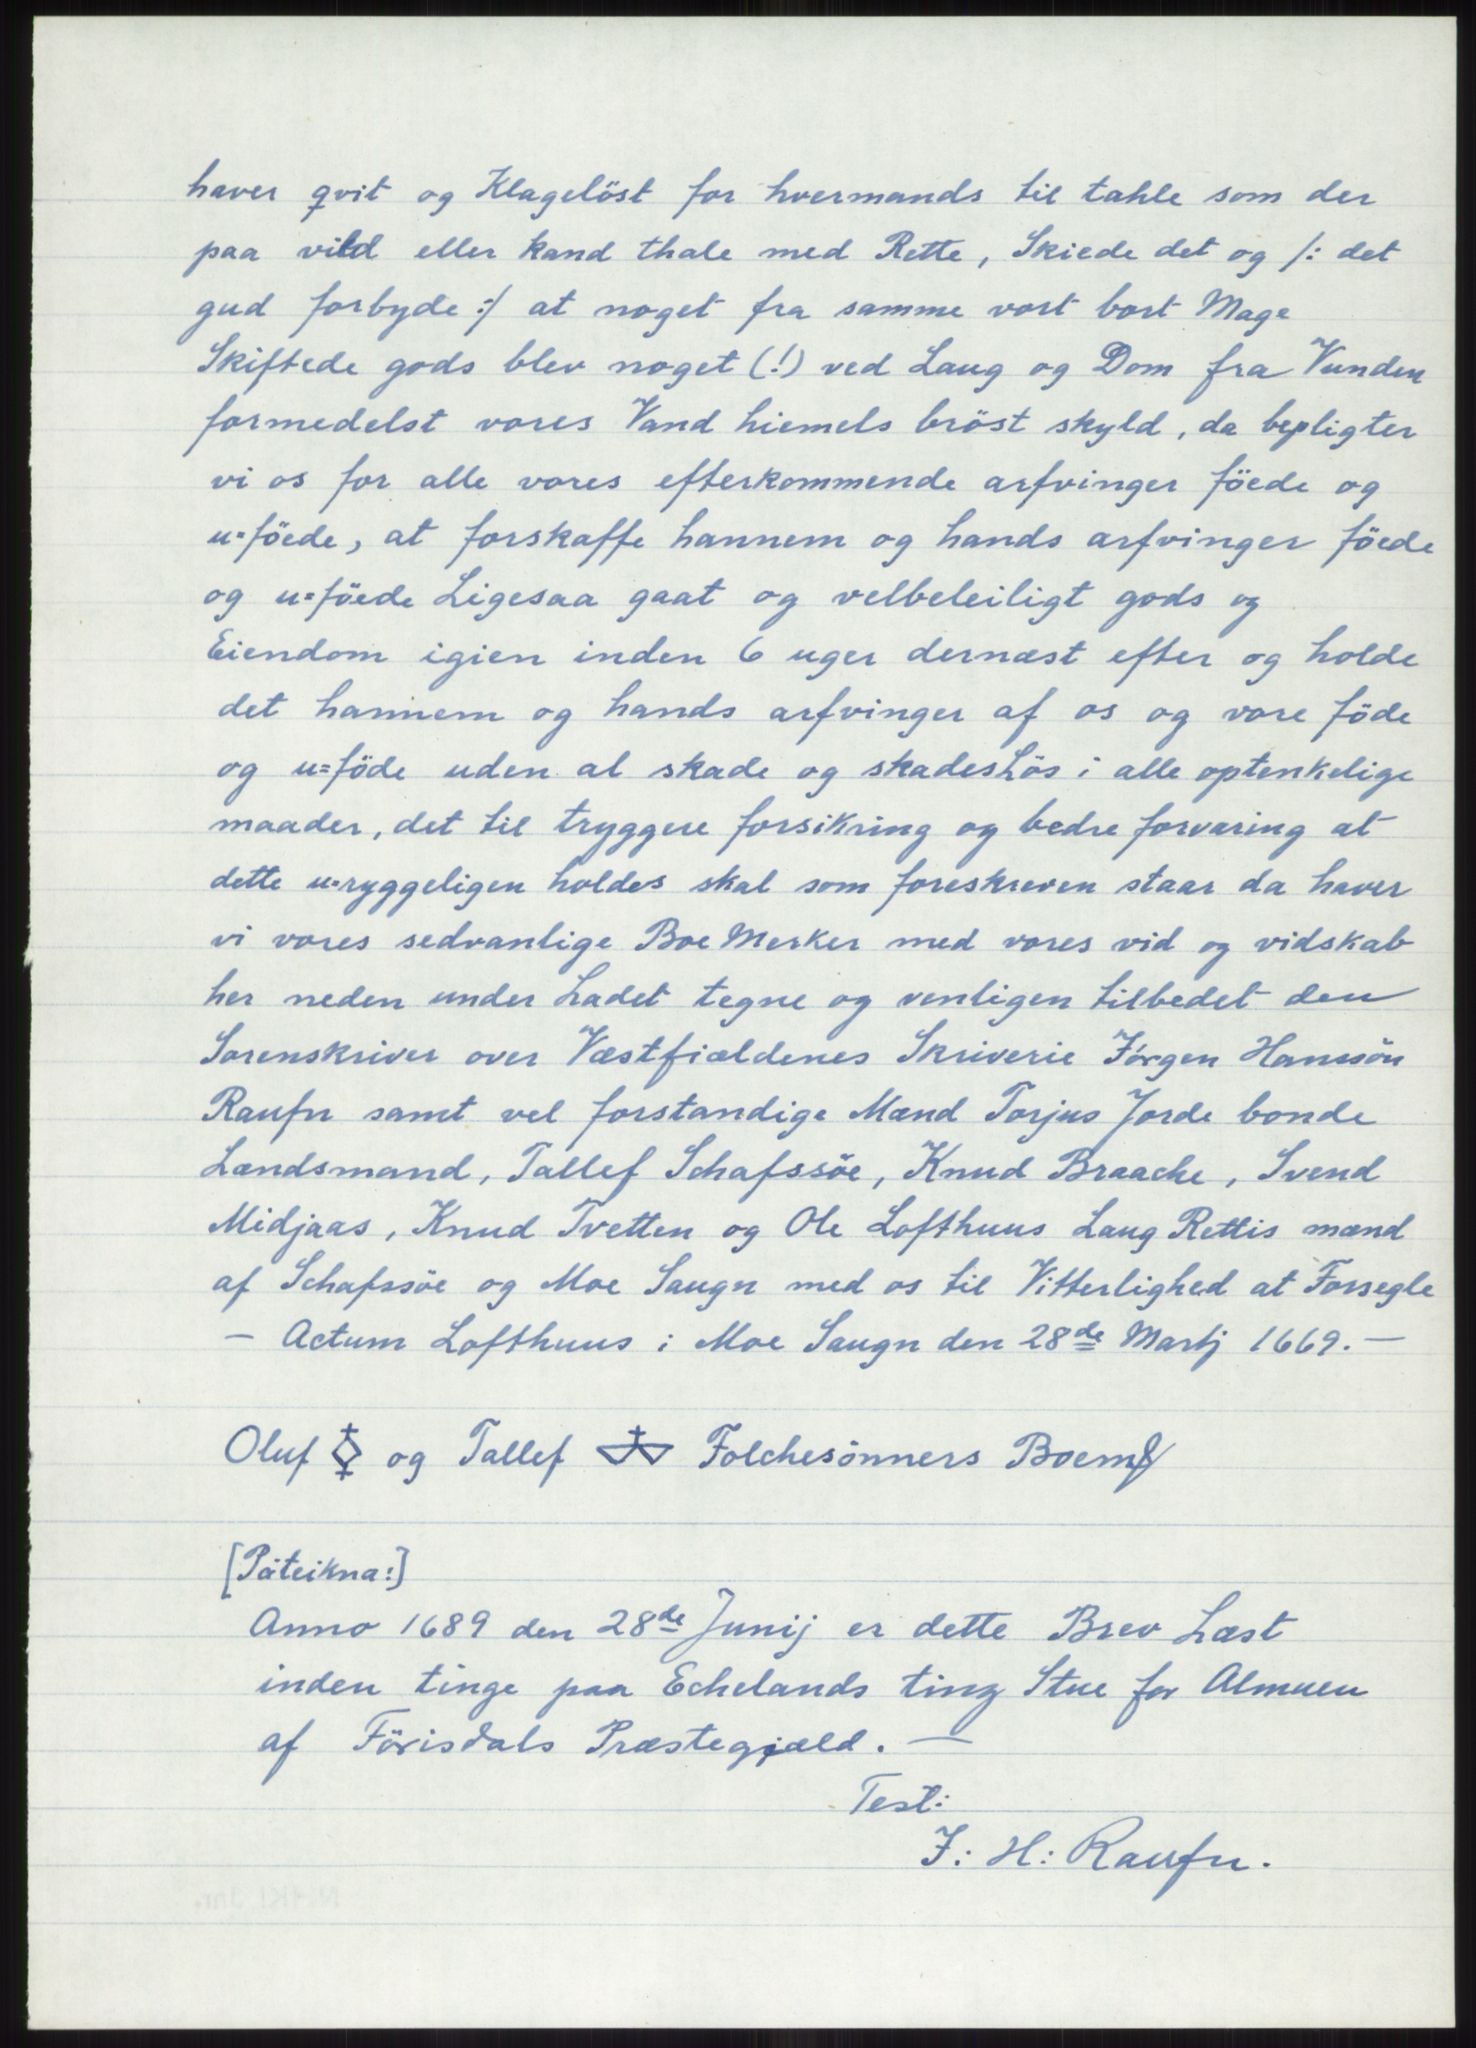 haver qvit og Klagelöst for hvermands til tahle som der
paa vild eller kand thale med Rette, Skiede det og /: det
gud forbyde :/ at noget fra samme vort bort Mage
Skiftede gods blev noget (!) ved Laug og Dom fra Vunden
formedelst vores Vand hiemels bröst skyld, da bepligter
vi os for alle vores efterkommende arfvinger föede og
u=föede, at forskaffe hannem og hands arfvinger föede
og u=föede Ligesaa gaat og velbeleiligt gods og
Eiendom igien inden 6 uger dernæst efter og holde
det hannem og hands arfvinger af os og vore föde
og u=föde uden al skade og skadesLös i alle optenkelige
maader, det til tryggere forsikring og bedre forvaring at
dette u=ryggeligen holdes skal som foreskreven staar da haver
vi vores sedvanlige Boe Merker med vores vid og vidskab
her neden under Ladet tegne og venligen tilbedet den
Sorenskriver over Væstfieldenes Skriverie Jörgen Hanssön
Raufn samt vel forstandige Mænd Torjus Jorde bonde
Lændsmand, Tallef Schafssöe, Knud Braache, Svend
Midjaas, Knud Tvetten og Ole Lofthuus Laug Rettis mænd
af Schafssöe og Moe Saugn med os til Vitterlighed at Forsegle
— Actum Lofthuus i Moe Saugn den 28de Martj 1669. —
Oluf og Tallef Folchesönners Boem
[Påteikna:]
Anno 1689 den 28de Junij er dette Brev Læst
inden tinge paa Echelands ting Stue for Almuen
af Förisdals Præstegjæld. —
Test:
J: H: Raufn.